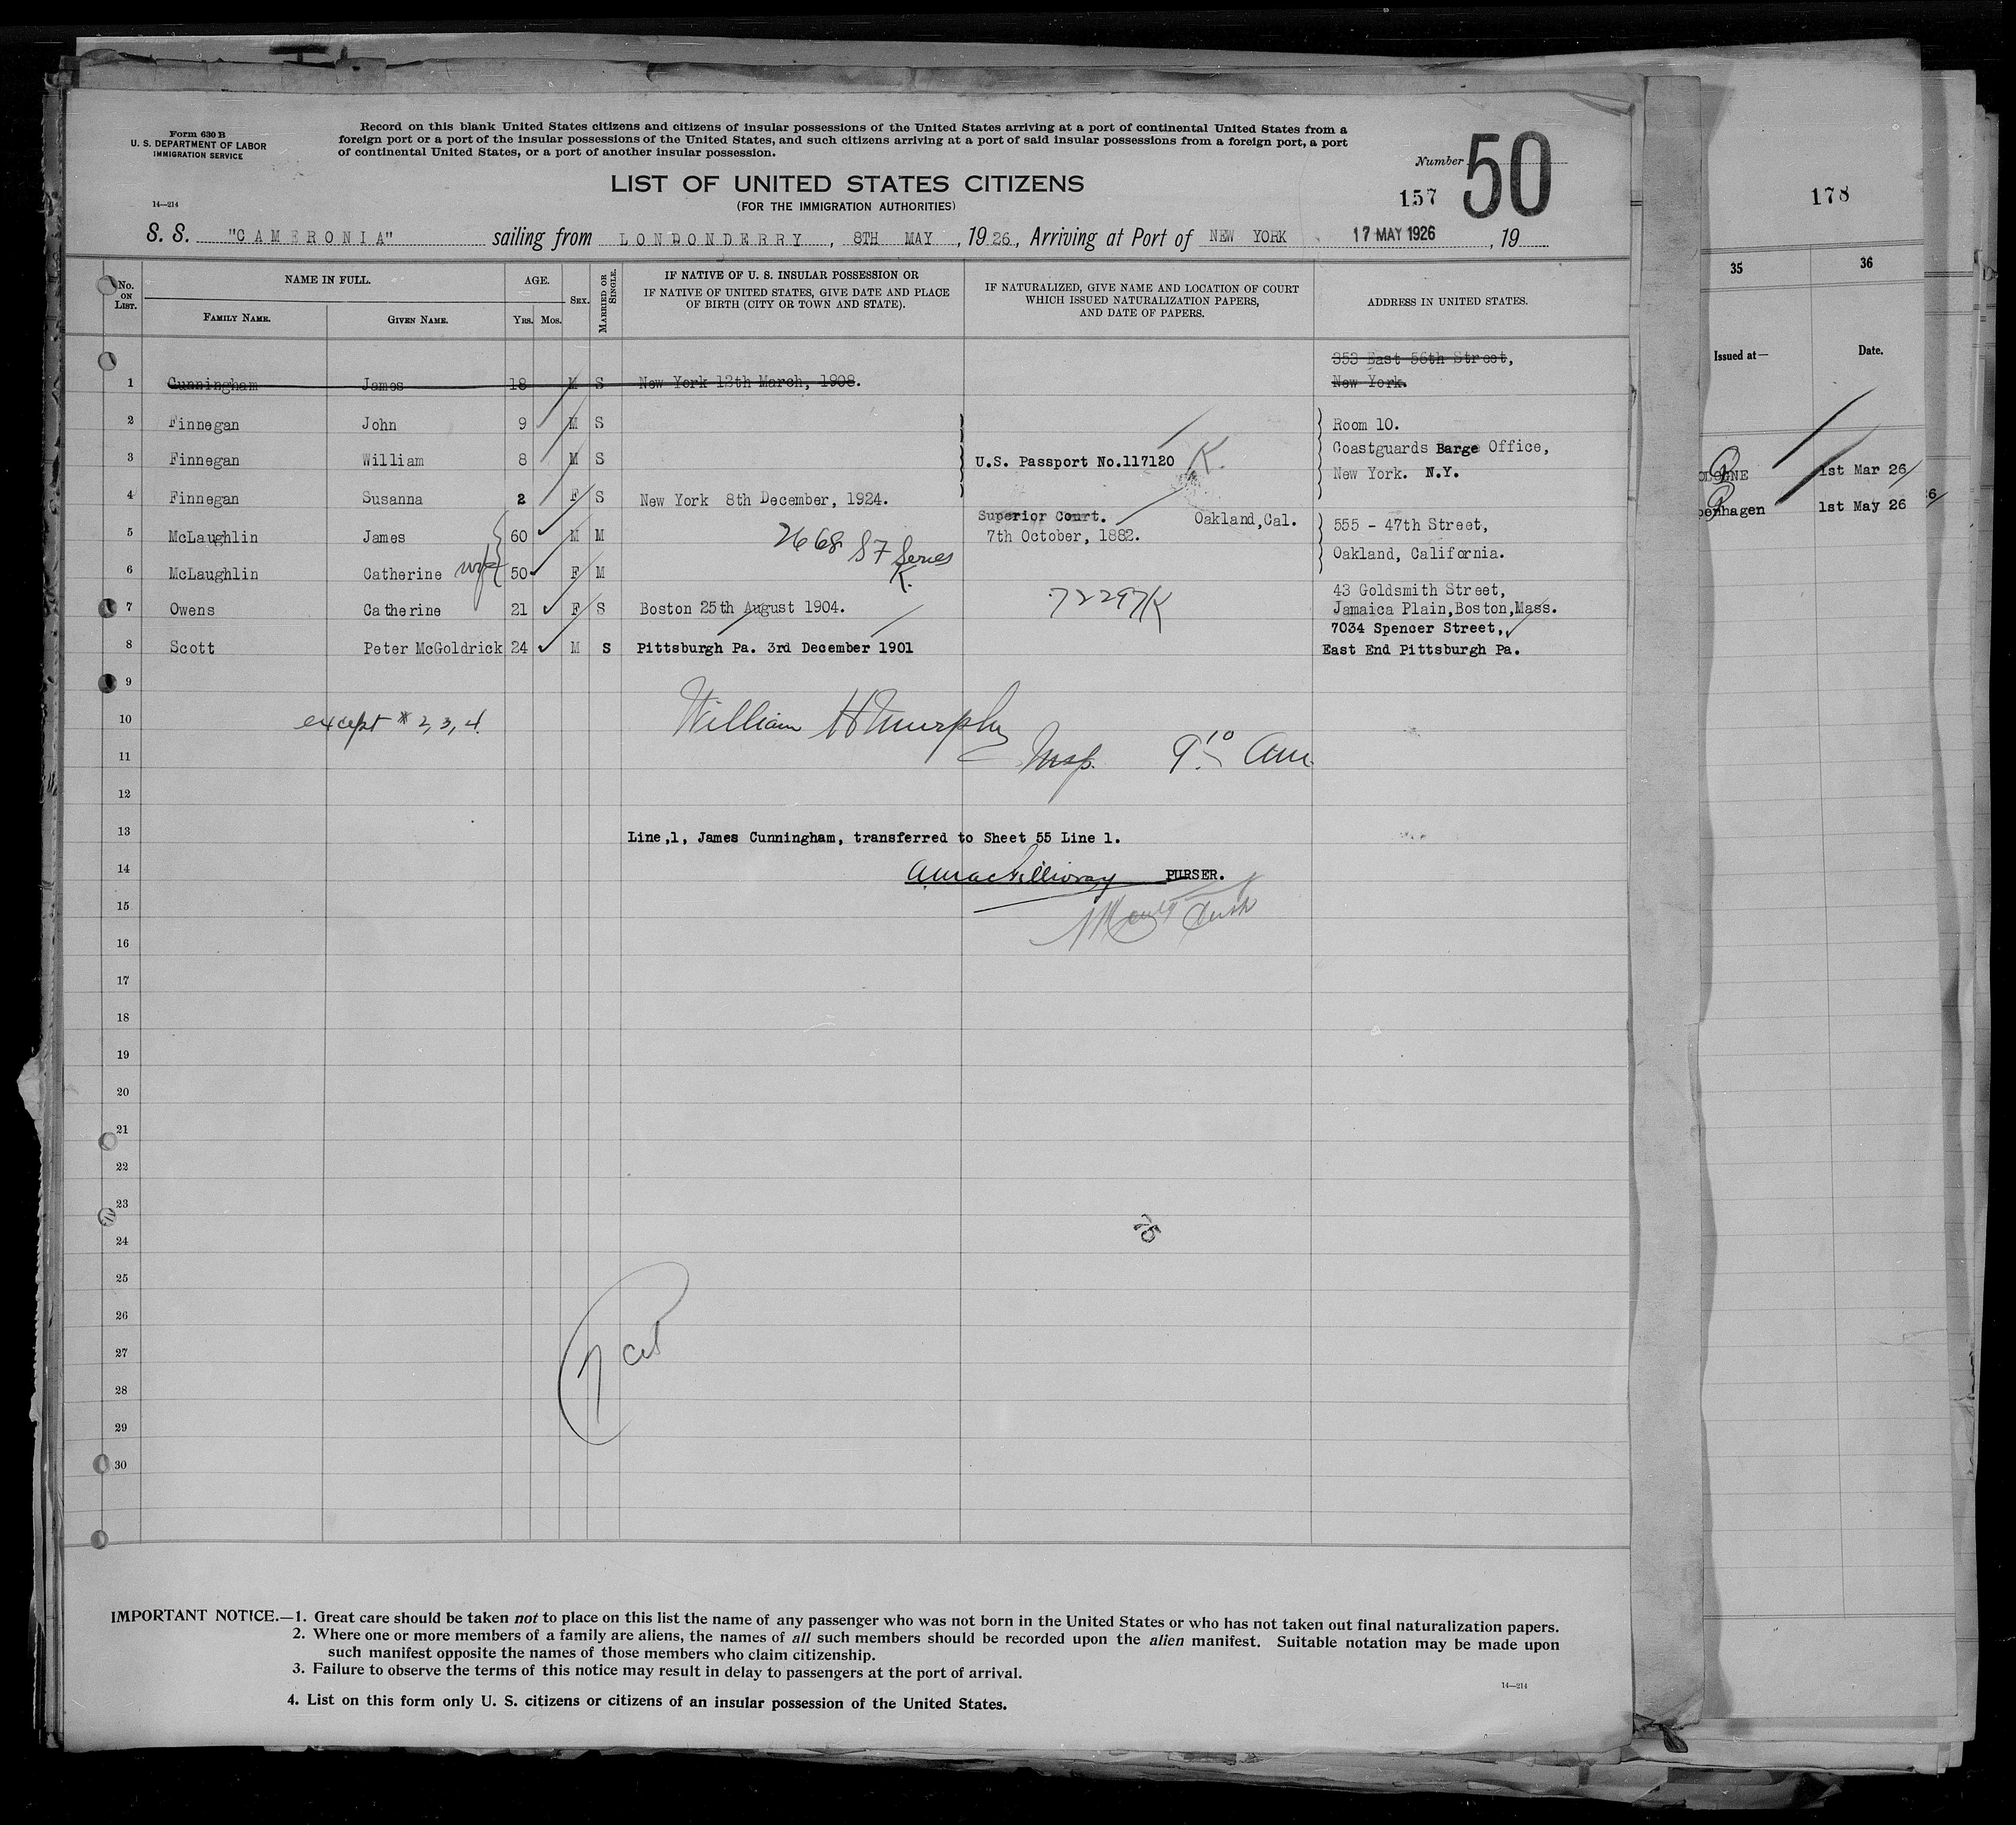 Form 630 B
U. S. DEPARTMENT OF LABOR
IMMIGRATION SERVICE
14—214
Record on this blank United States citizens and citizens of insular possessions of the United States arriving at a port of continental United States from a
foreign port or a port of the insular possessions of the United States, and such citizens arriving at a port of said insular possessions from a foreign port, a port
of continental United States, or a port of another insular possession.
Number 50
LIST OF UNITED STATES CITIZENS
(FOR THE IMMIGRATION AUTHORITIES)
157
S. S. "CAMERONIA" sailing from LONDONDERRY, 8TH MAY, 1926, Arriving at Port of NEW YORK 17 MAY 1926, 19
No. ON LIST.
NAME IN FULL.
FAMILY NAME.
GIVEN NAME.
AGE.
YRS. MOS.
SEX.
MARRIED OR SINGLE.
IF NATIVE OF U. S. INSULAR POSSESSION OR
IF NATIVE OF UNITED STATES, GIVE DATE AND PLACE
OF BIRTH (CITY OR TOWN AND STATE).
IF NATURALIZED, GIVE NAME AND LOCATION OF COURT
WHICH ISSUED NATURALIZATION PAPERS,
AND DATE OF PAPERS.
ADDRESS IN UNITED STATES.
353 East 56th Street,
1 Cunningham James 18 M S New York 12th March, 1908. New York.
2 Finnegan John 9 M S Room 10.
Coastguards Barge Office,
3 Finnegan William 8 M S U.S. Passport No.117120 K.
New York. N.Y.
4 Finnegan Susanna 2 F S New York 8th December, 1924.
Superior Court. Oakland,Cal.
5 McLaughlin James 60 M M 7th October, 1882. 555 - 47th Street,
2668 S7 Series
K.
Oakland, California.
6 McLaughlin Catherine wife 50 F M
43 Goldsmith Street,
7 Owens Catherine 21 F S Boston 25th August 1904. 72297K Jamaica Plain,Boston,Mass.
7034 Spencer Street,
8 Scott Peter McGoldrick 24 M S Pittsburgh Pa. 3rd December 1901 East End Pittsburgh Pa.
9
10 except # 2, 3, 4. William H Murphy
11 Insp. 9:10 Am
12
13 Line,1, James Cunningham, transferred to Sheet 55 Line 1.
14 PURSER.
15
16
17
18
19
20
21
22
23
24 75
25
26
27
28
29
30
IMPORTANT NOTICE.—1. Great care should be taken not to place on this list the name of any passenger who was not born in the United States or who has not taken out final naturalization papers.
2. Where one or more members of a family are aliens, the names of all such members should be recorded upon the alien manifest. Suitable notation may be made upon
such manifest opposite the names of those members who claim citizenship.
3. Failure to observe the terms of this notice may result in delay to passengers at the port of arrival.
4. List on this form only U. S. citizens or citizens of an insular possession of the United States.
14—214
178
35 36
Issued at— Date.
1st Mar 26
penhagen 1st May 26